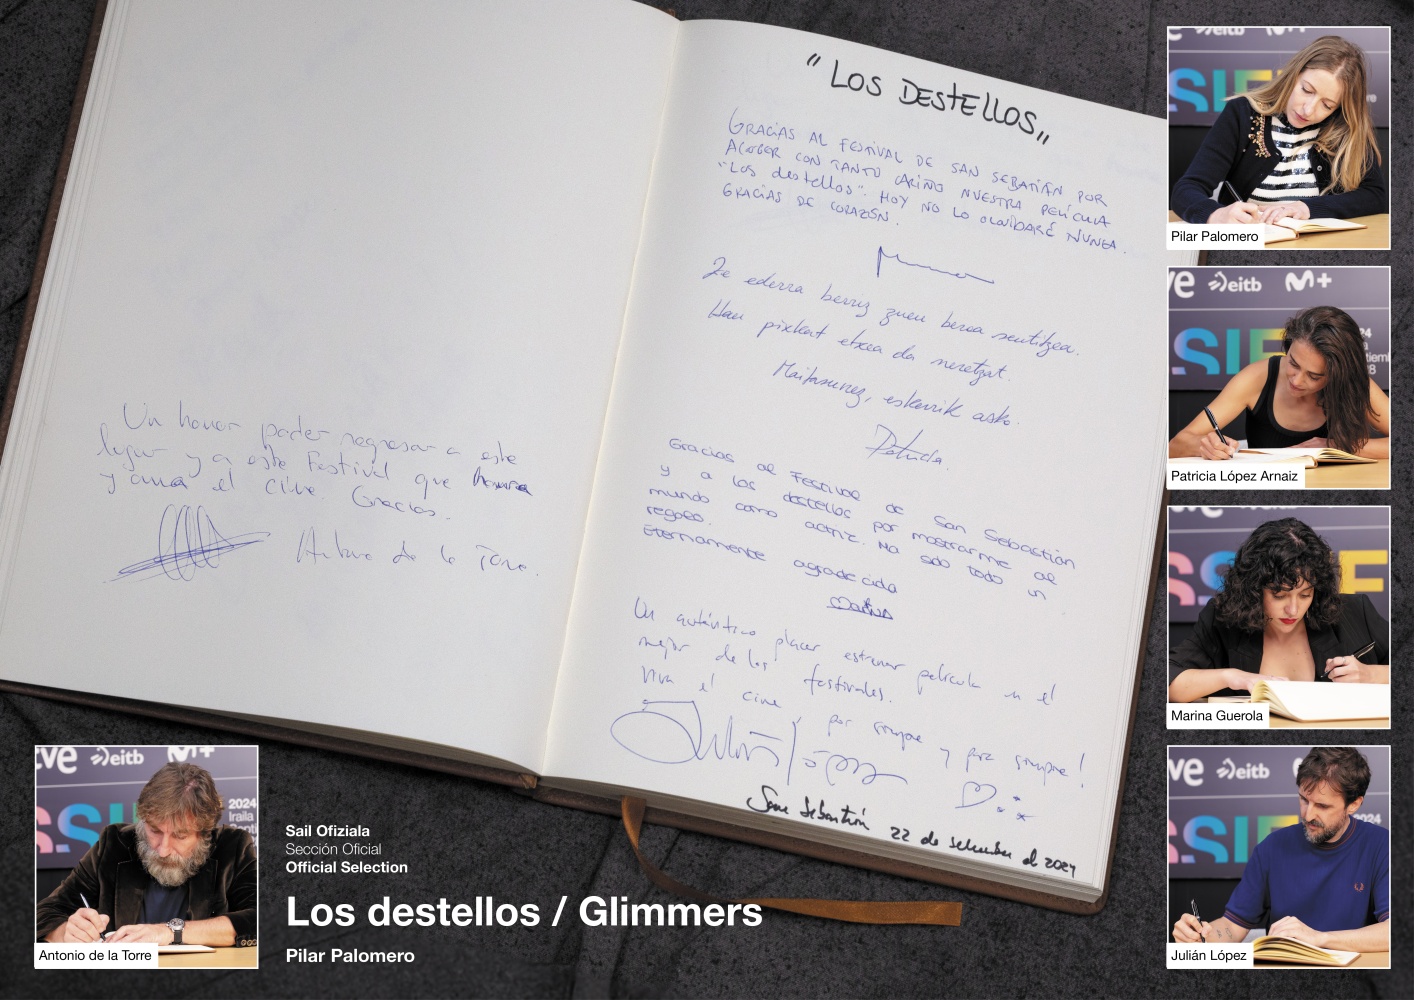 "LOS DESTELLOS"
GRACIAS AL FESTIVAL DE SAN SEBATIÁN POR
ACOGER CON TANTO CARIÑO NUESTRA PELÍCULA
"LOS destellos". HOY NO LO OLVIDARÉ NUNCA.
GRACIAS DE CORAZÓN.
Ze ederra berriz zuen beroa sentitzea.
Hau pixkat etxea da neretzat.
Maitasunez, eskerrik asko.
Patricia.
Gracias al Festival de San Sebastián
y a los destellos por mostrarme al
mundo como actriz. Ha sido todo un
regalo.
Eternamente agradecida
Marina
Un auténtico placer estrenar película en el
mejor de los festivales.
Viva el cine por siempre y para siempre!
Julián López
San Sebastián 22 de setiembre de 2024
Un honor poder regresar a este
lugar y a este Festival que honra
y ama el cine. Gracias.
Antonio de la Torre.
eitb M+
SSIF
Pilar Palomero
ve eitb M+
SSIF
Patricia López Arnaiz
SSIF
Marina Guerola
ve eitb M+
SSIF
Julián López
tve eitb M+
SSIF
2024
Iraila
Antonio de la Torre
Sail Ofiziala
Sección Oficial
Official Selection
Los destellos / Glimmers
Pilar Palomero